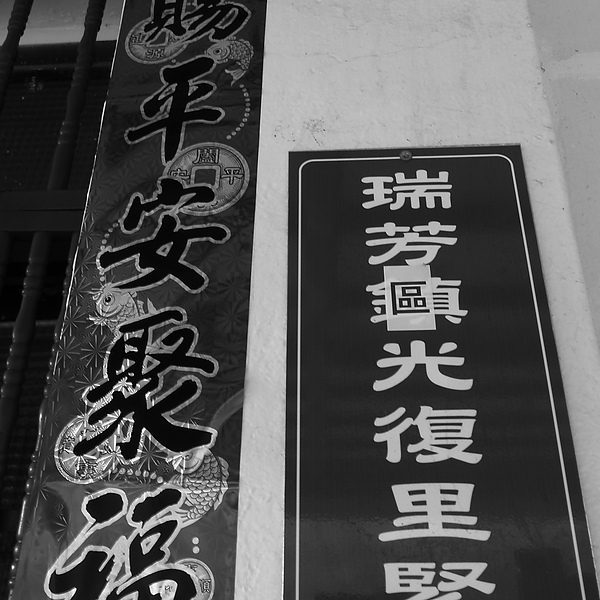 瑞芳鎮光復里緊
區
賜平安聚福
闔平安